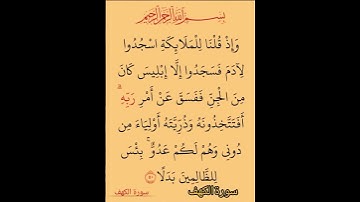 بسم الله الرحمن الرحيم
وَإِذْ قُلْنَا لِلْمَلَٰٓئِكَةِ ٱسْجُدُوا
لِآدَمَ فَسَجَدُوا إِلَّا إِبْلِيسَ كَانَ
مِنَ الْجِنِّ فَفَسَقَ عَنْ أَمْرِ رَبِّهِ ۗ
أَفَتَتَّخِذُونَهُ وَذُرِّيَّتَهُ أَوْلِيَاءَ مِن
دُونِي وَهُمْ لَكُمْ عَدُوٌّ ۚ بِئْسَ
لِلظَّالِمِينَ بَدَلًا ﴿٥٠﴾
سورة الكهف
سورة الكهف